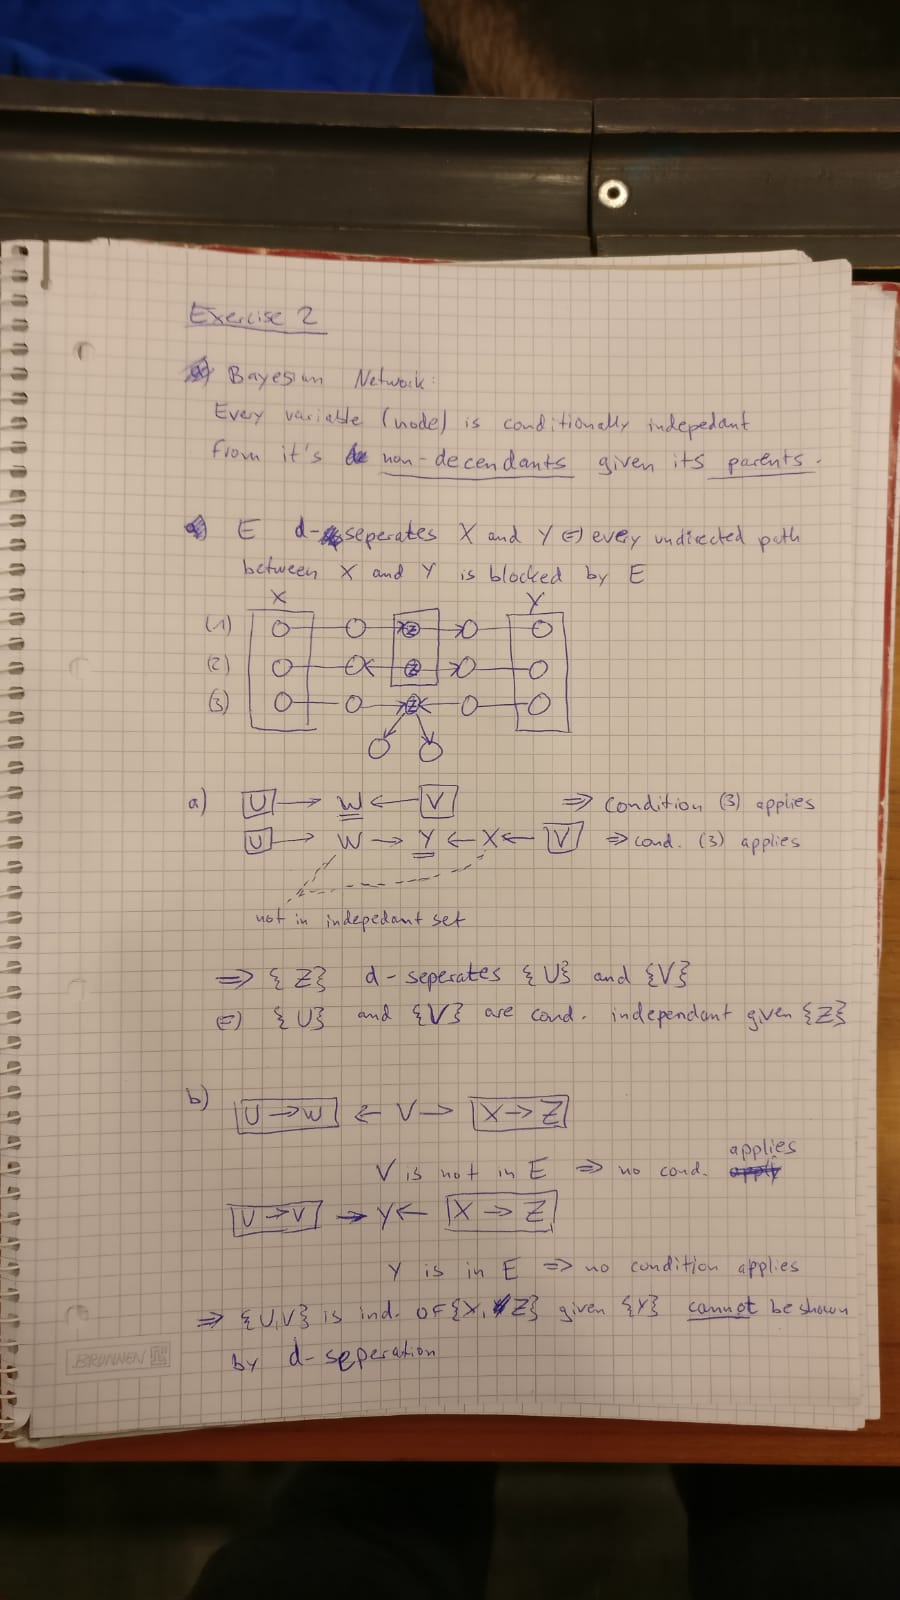 Exercise 2
Bayesian Network:
Every variable (node) is conditionally indepedant
from it's non-decendants given its parents.
E d-seperates X and Y ⇔ every undirected path
between X and Y is blocked by E
X Y
(1) Z
(2) Z
(3) Z
a) U → W ← V ⇒ condition (3) applies
U → W → Y ← X ← V ⇒ cond. (3) applies
not in indepedant set
⇒ {Z} d-seperates {U} and {V}
⇔ {U} and {V} are cond. independant given {Z}
b) U → W ← V → X → Z
applies
V is not in E ⇒ no cond.
→ Y ← X → Z
Y is in E ⇒ no condition applies
⇒ {U,V} is ind. OF {X, Z} given {Y} cannot be shown
by d-seperation
BRUNNEN